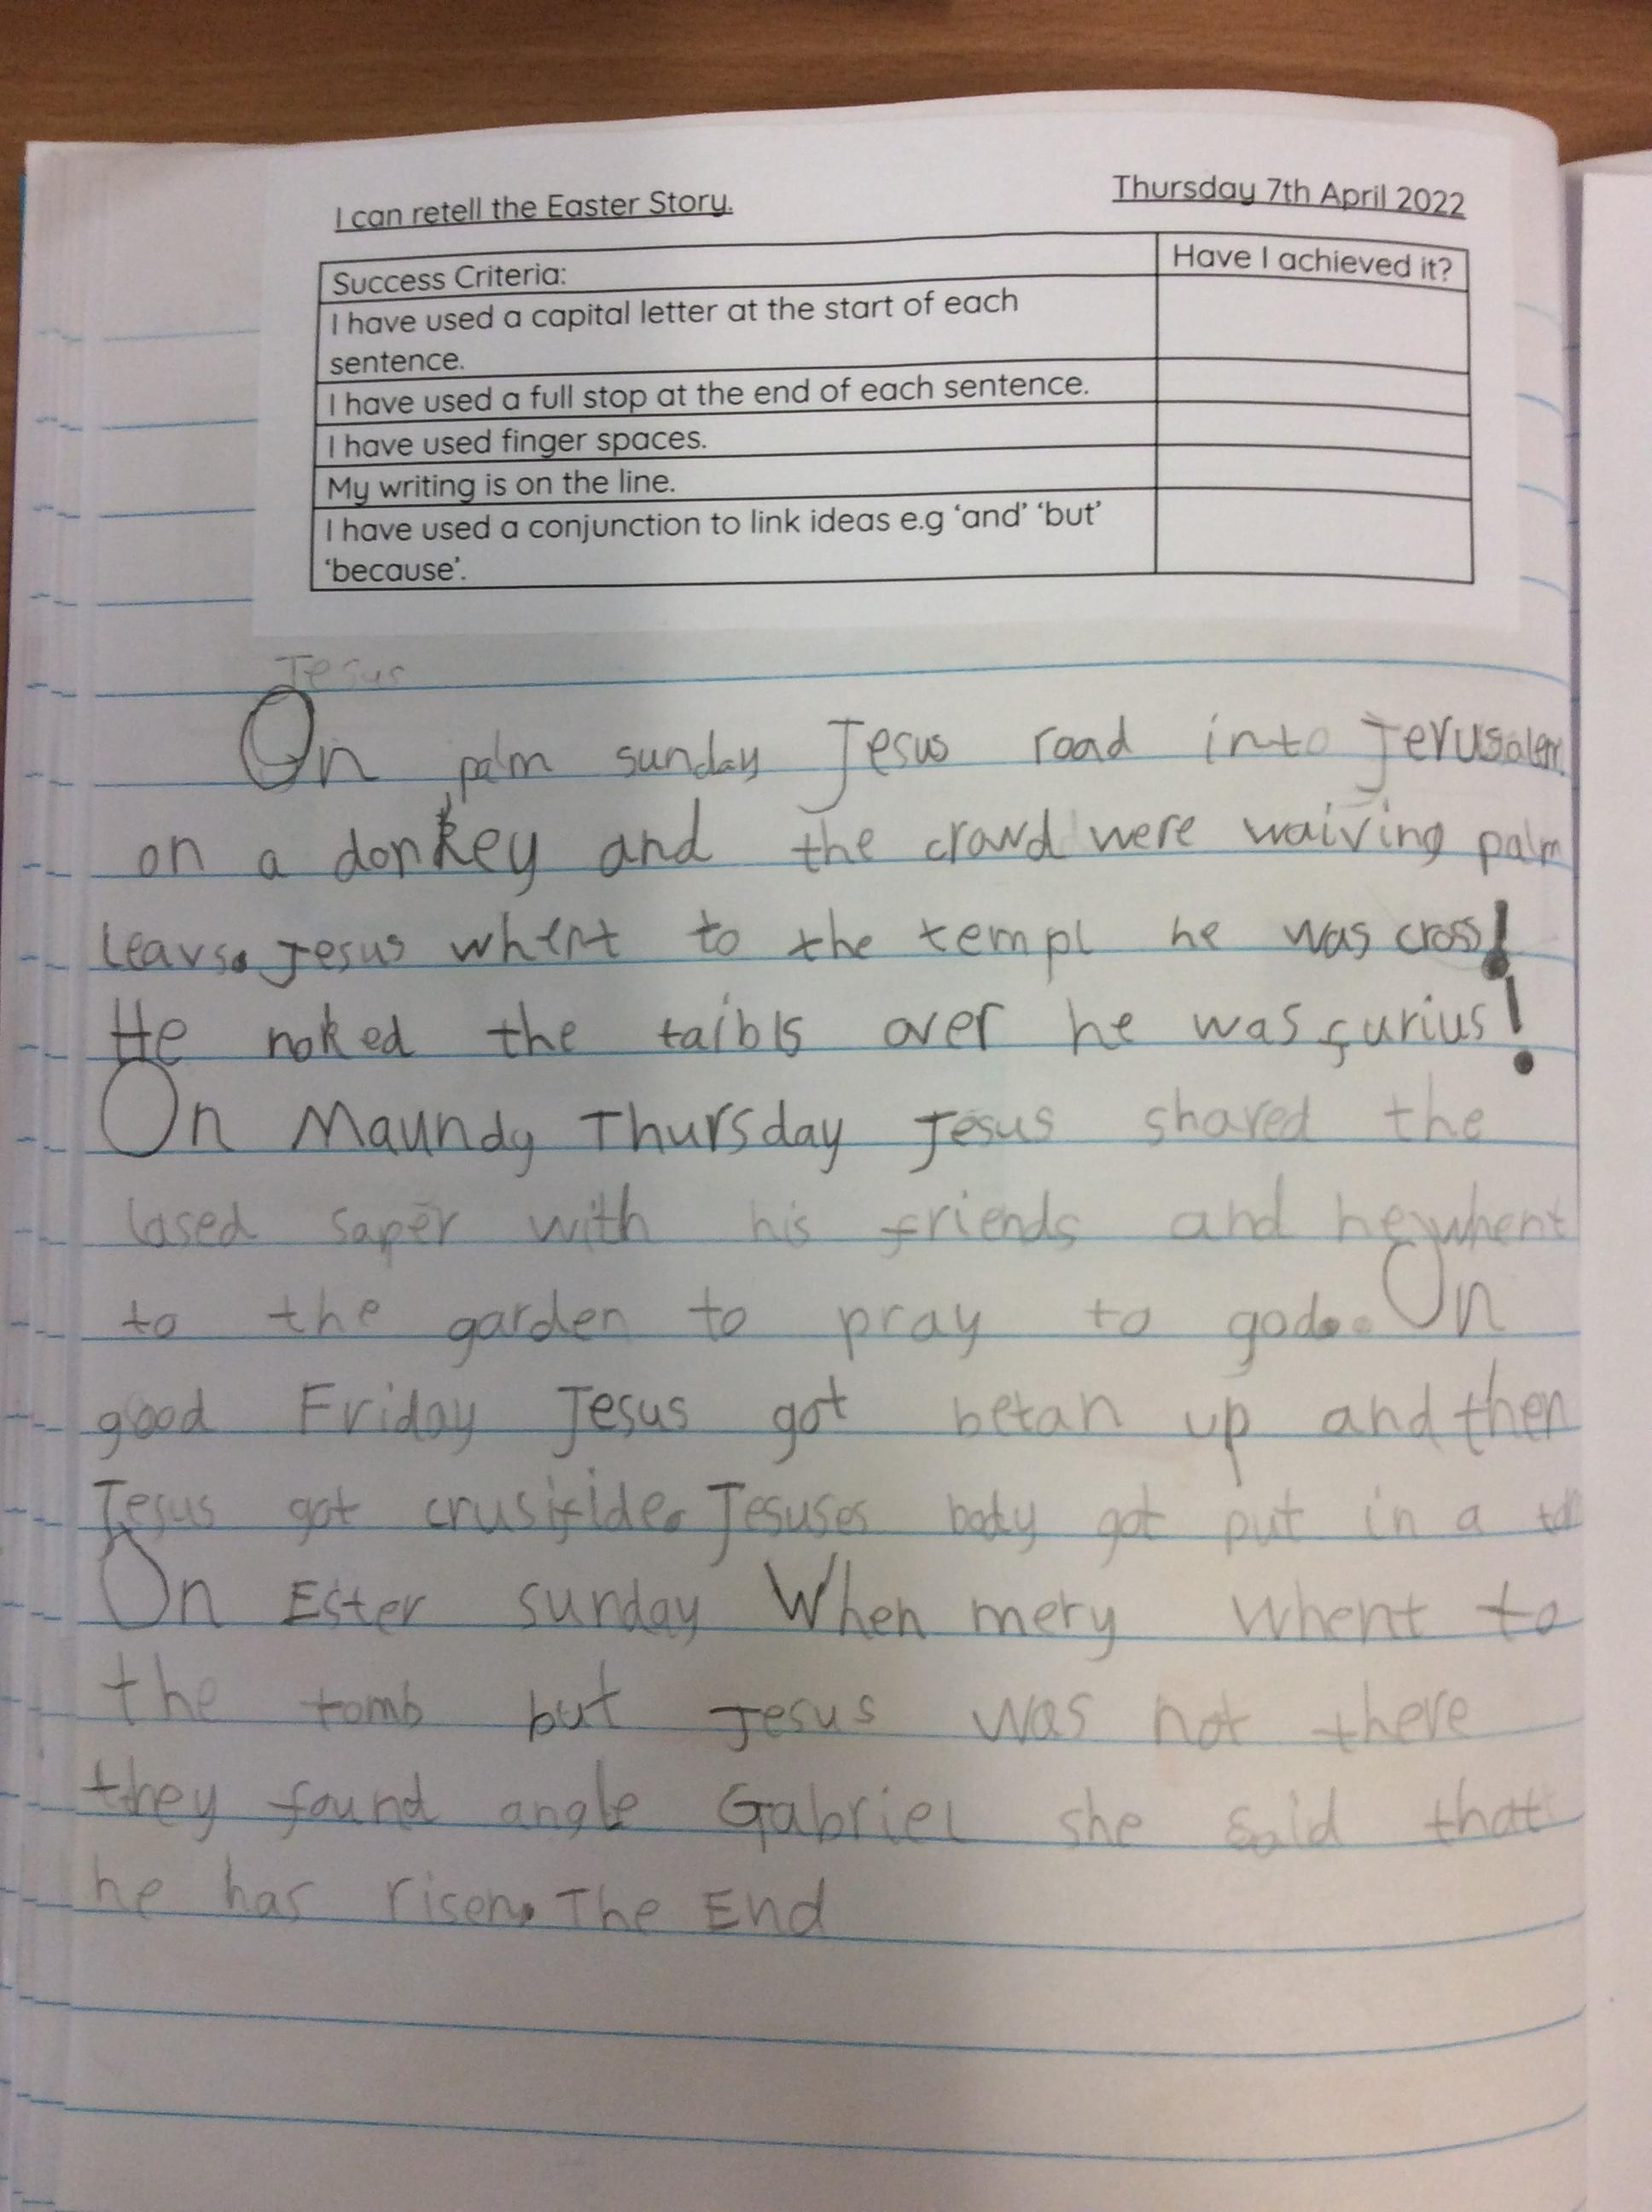 I can retell the Easter Story.
Thursday 7th April 2022
Success Criteria:
Have I achieved it?
I have used a capital letter at the start of each
sentence.
I have used a full stop at the end of each sentence.
I have used finger spaces.
My writing is on the line.
I have used a conjunction to link ideas e.g ‘and’ ‘but’
‘because’.
Jesus
On palm sunday Jesus road into Jerusalem
on a donkey and the crawd were waiving palm
leavs. Jesus whent to the templ he was cross!
He noked the taibls over he was furius!
On Maundy Thursday Jesus shared the
lased saper with his friends and he whent
to the garden to pray to god. On
good Friday Jesus got betan up and then
Jesus got crusifide. Jesuses body got put in a
On Ester sunday When mery whent to
the tomb but Jesus was not there
they found angle Gabriel she said that
he has risen. The End